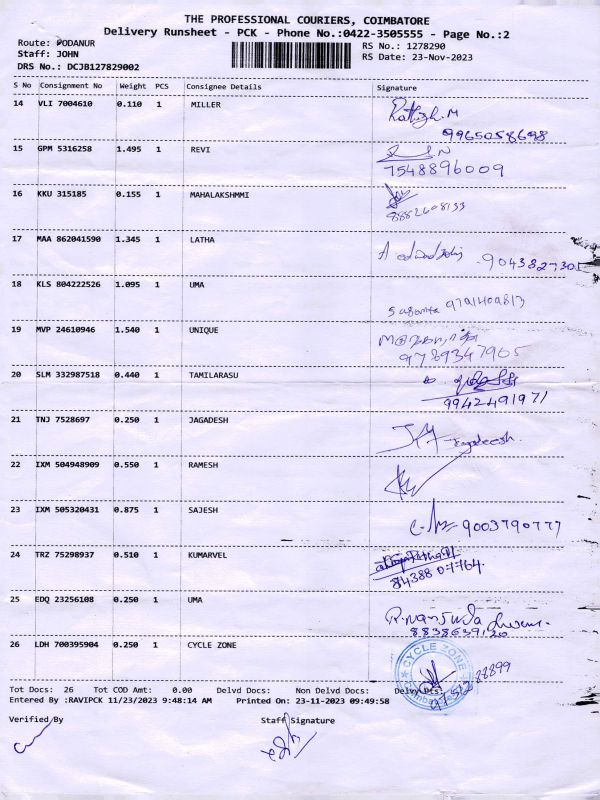 THE PROFESSIONAL COURIERS, COIMBATORE
Delivery Runsheet - PCK - Phone No.:0422-3505555 - Page No.:2
Route: PODANUR RS No.: 1278290
Staff: JOHN RS Date: 23-Nov-2023
DRS No.: DCJB127829002
S No Consignment No Weight PCS Consignee Details Signature
14 VLI 7004610 0.110 1 MILLER
9965058698
15 GPM 5316258 1.495 1 REVI
7548896009
16 KKU 315185 0.155 1 MAHALAKSHMMI
8882608133
17 MAA 862041590 1.345 1 LATHA
18 KLS 804222526 1.095 1 UMA
19 MVP 24610946 1.540 1 UNIQUE
9789347965
20 SLM 332987518 0.440 1 TAMILARASU
9942491971
21 TNJ 7528697 0.250 1 JAGADESH Jagadeesh.
22 IXM 504948909 0.550 1 RAMESH
23 IXM 505320431 0.875 1 SAJESH 9003790777
24 TRZ 75298937 0.510 1 KUMARVEL
84388 07764.
25 EDQ 23256108 0.250 1 UMA
26 LDH 700395904 0.250 1 CYCLE ZONE
CYCLE ZONE
Tot Docs: 26 Tot COD Amt: 0.00 Delvd Docs: Non Delvd Docs: Delvy Dct:
Entered By :RAVIPCK 11/23/2023 9:48:14 AM Printed On: 23-11-2023 09:49:58
Verified By Staff Signature